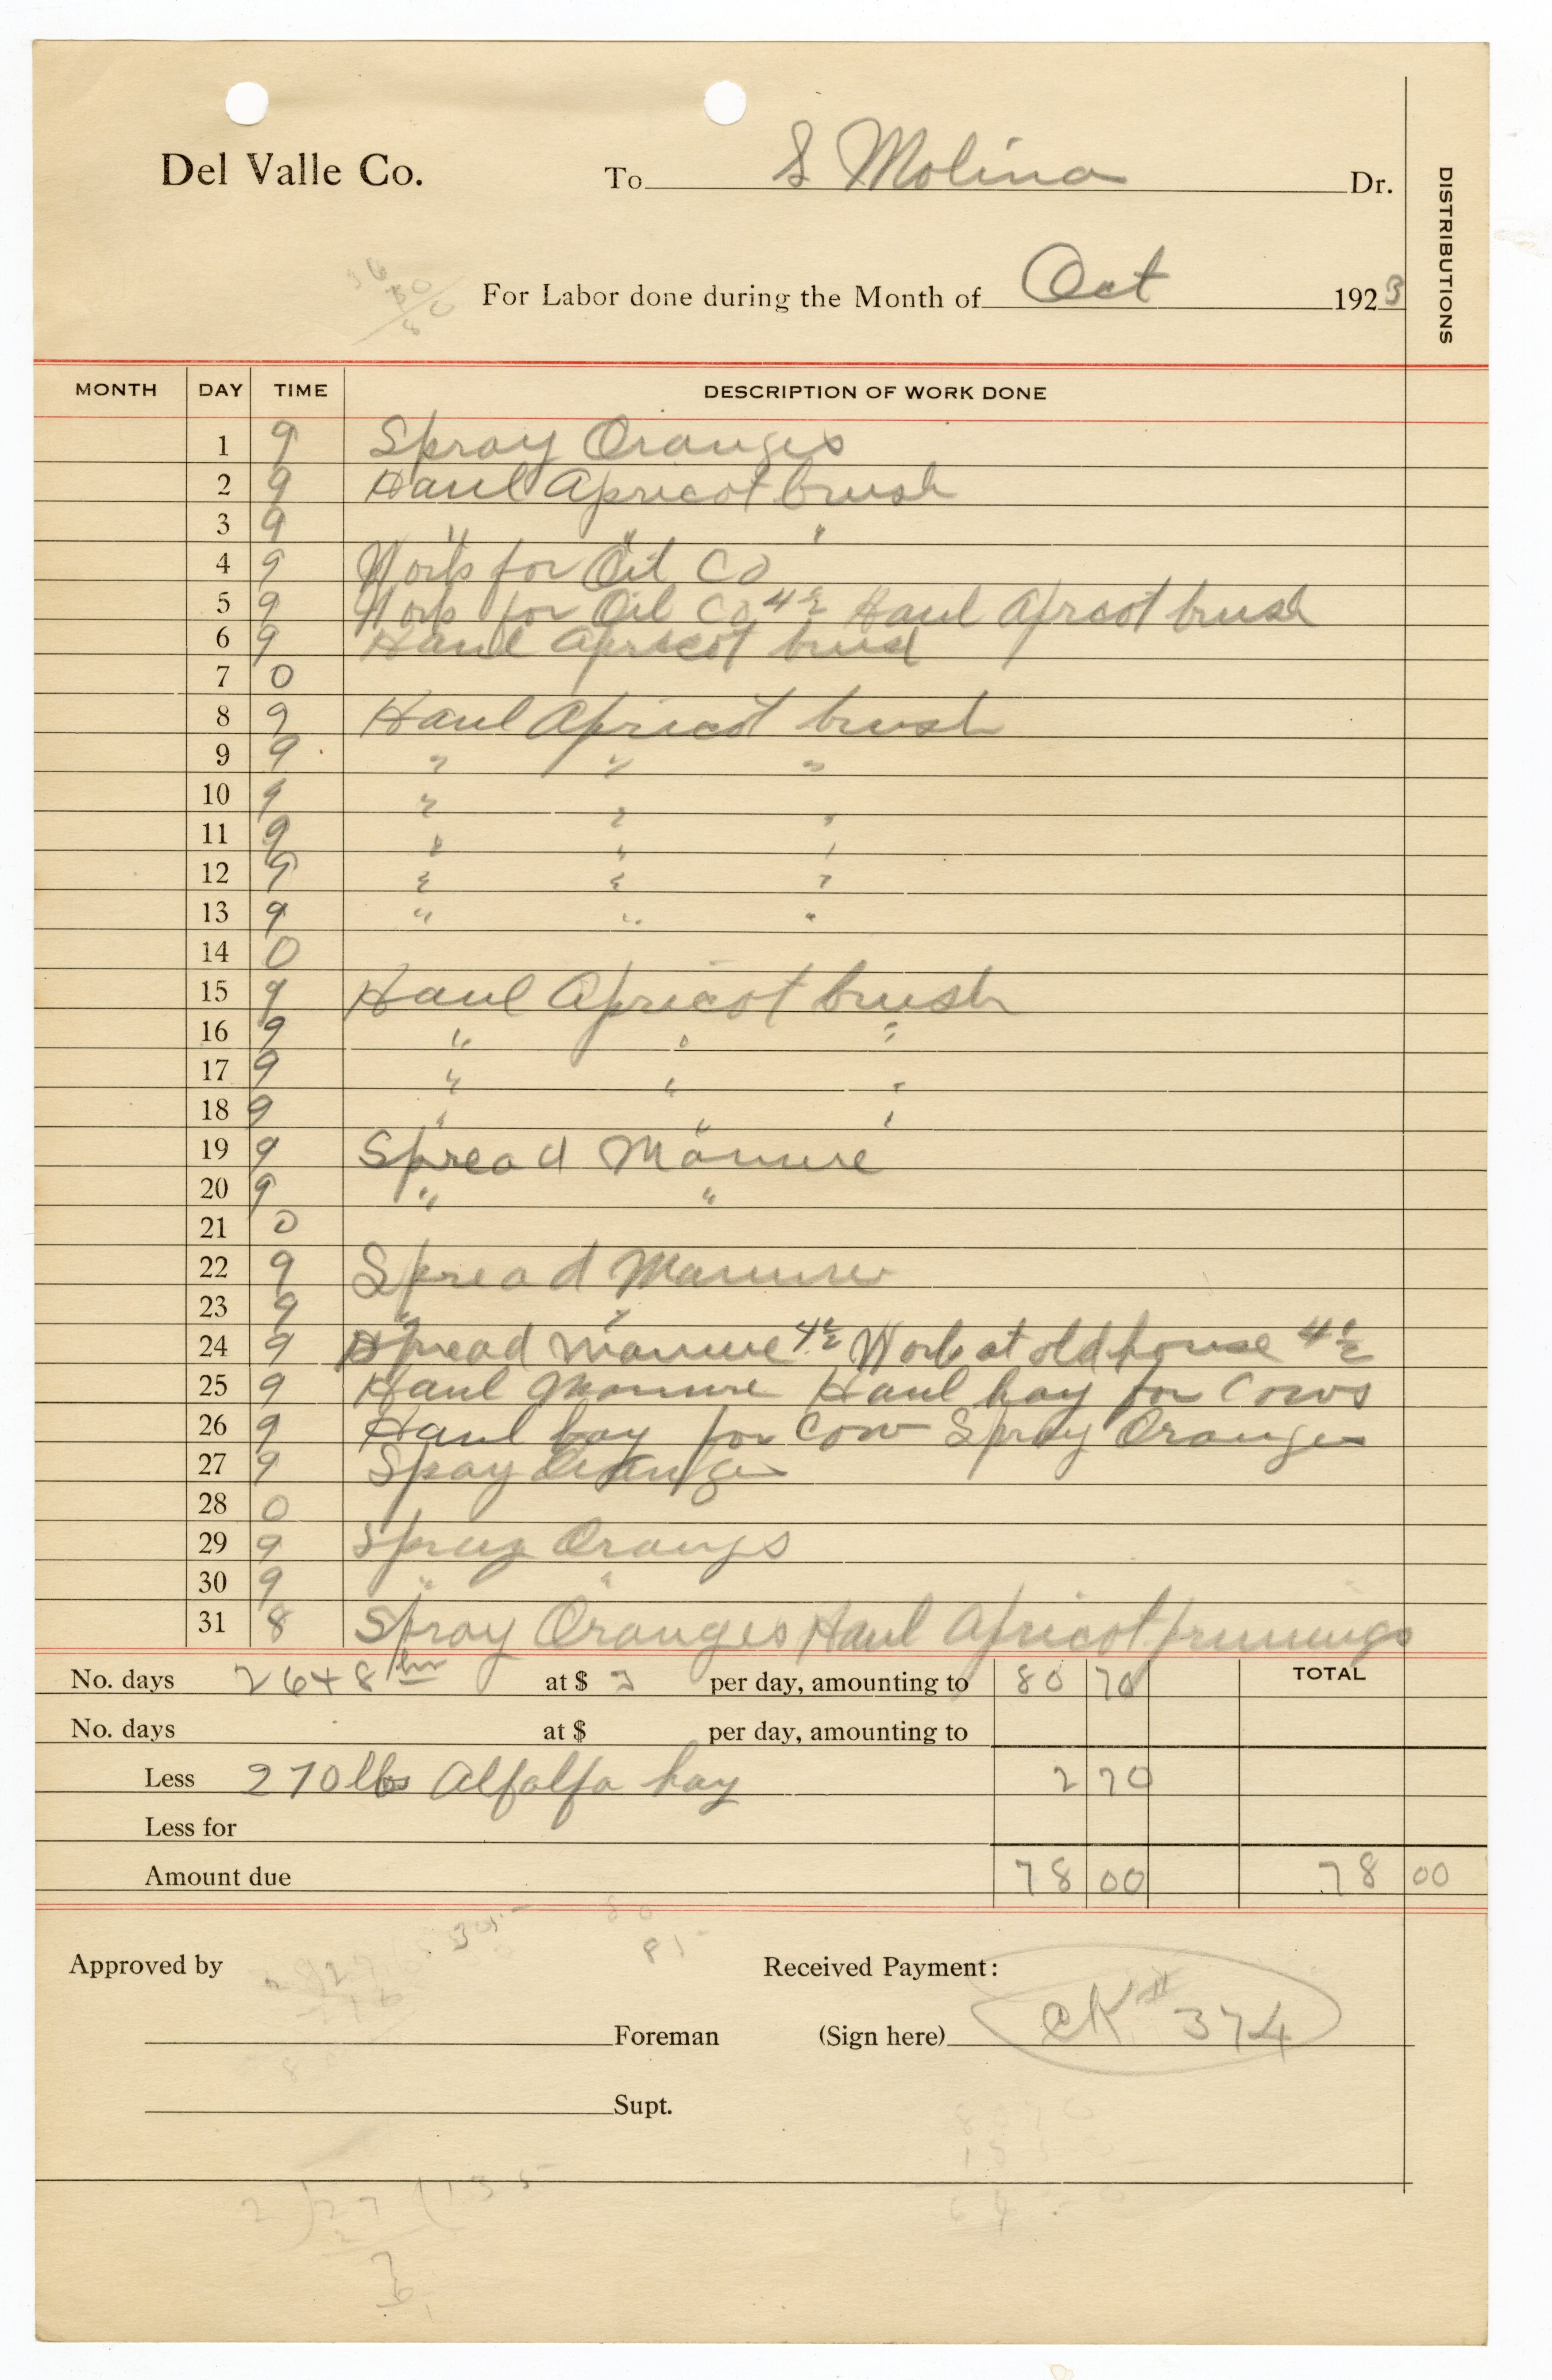 Del Valle Co. To S Molina Dr.
DISTRIBUTIONS
For Labor done during the Month of Oct 1923
MONTH DAY TIME DESCRIPTION OF WORK DONE
1 9 Spray Oranges
2 9 Haul Apricot brush
3 9 " " "
4 9 Work for Oil Co
5 9 Work for Oil Co 4½ Haul Apricot brush
6 9 Haul Apricot brush
7 0
8 9 Haul Apricot brush
9 9 " " "
10 9 " " "
11 9 " " "
12 9 " " "
13 9 " " "
14 0
15 9 Haul Apricot brush
16 9 " " "
17 9 " " "
18 9 " " "
19 9 Spread Manure
20 9 " "
21 0
22 9 Spread Manure
23 9 " "
24 9 Spread Manure 4½ Work at old house 4½
25 9 Haul Manure Haul hay for Cows
26 9 Haul hay for Cow Spray Oranges
27 9 Spray Oranges
28 0
29 9 Spray Orangs
30 9 " "
31 8 Spray Oranges Haul Apricot prunings
No. days 26+8 hr at $ 3 per day, amounting to 80 70 TOTAL
No. days at $ per day, amounting to
Less 270 lbs Alfalfa hay 2 70
Less for
Amount due 78 00 78 00
Approved by Received Payment:
Foreman (Sign here) CK # 374
Supt.
2)27(135